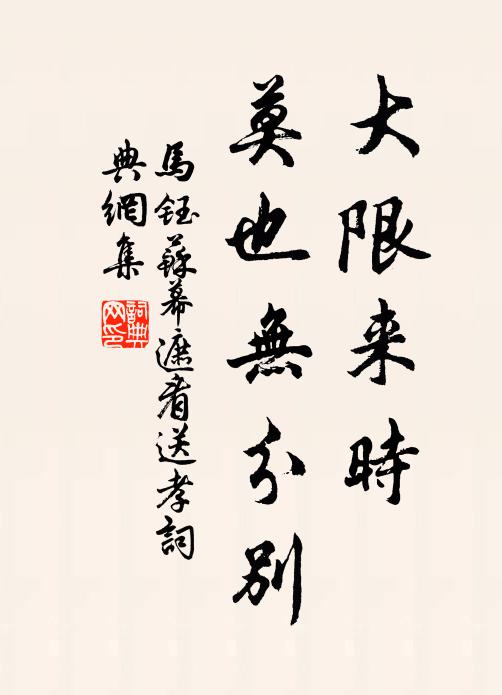 大限来時
莫也無分別
馬鈺蘇幕遮看送孝詞
典網集
詞典網印